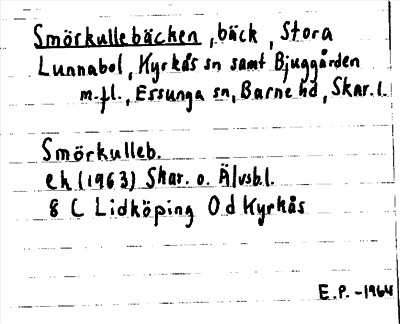 Smörkullebäcken, bäck, Stora
Lunnabol, Kyrkås sn samt Bjuggården
m.fl., Essunga sn, Barne hd, Skar.l.
Smörkulleb.
ek (1963) Skar. o. Älvsb.l.
8 C Lidköping 0d Kyrkås
E.P. -1964